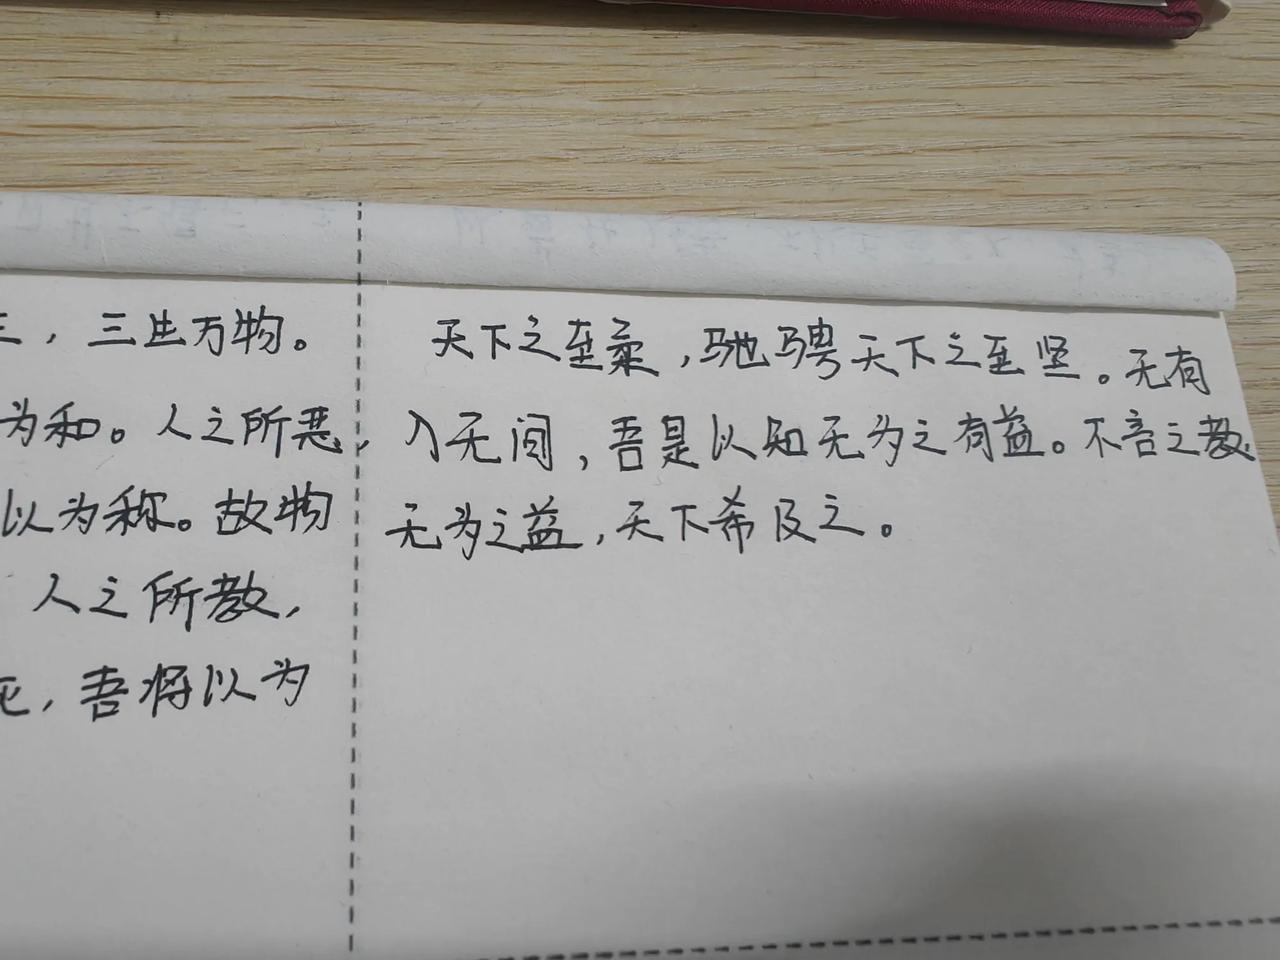 三，三生万物。
为和。人之所恶，
以为称。故物
人之所教，
死，吾将以为
天下之至柔，驰骋天下之至坚。无有
入无间，吾是以知无为之有益。不言之教，
无为之益，天下希及之。